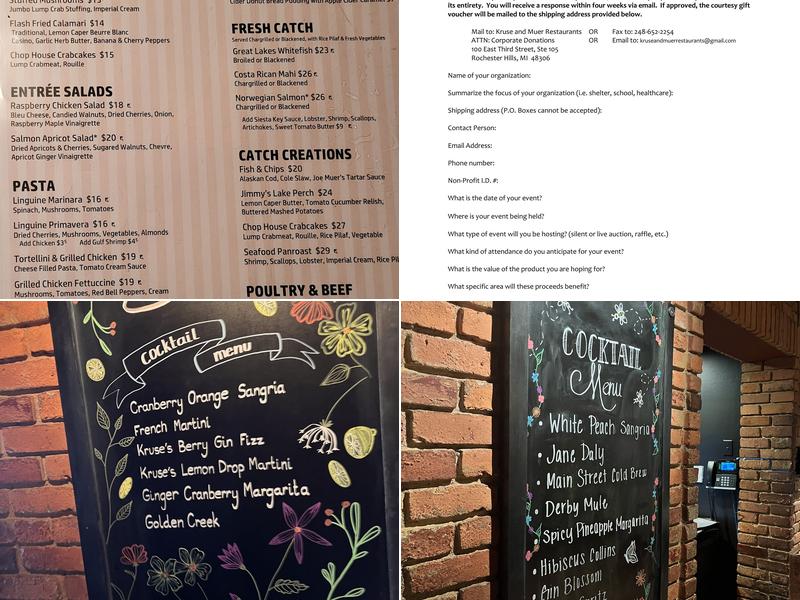 Jumbo Lump Crab Stuffing, Imperial Cream
Flash Fried Calamari $14
Traditional, Lemon Caper Beurre Blanc
Casino, Garlic Herb Butter, Banana & Cherry Peppers
Chop House Crabcakes $15
Lump Crabmeat, Rouille
ENTRÉE SALADS
Raspberry Chicken Salad $18
Bleu Cheese, Candied Walnuts, Dried Cherries, Onion,
Raspberry Maple Vinaigrette
Salmon Apricot Salad* $20
Dried Apricots & Cherries, Sugared Walnuts, Chevre,
Apricot Ginger Vinaigrette
PASTA
Linguine Marinara $16
Spinach, Mushrooms, Tomatoes
Linguine Primavera $16
Dried Cherries, Mushrooms, Vegetables, Almonds
Add Chicken $3⁵ Add Gulf Shrimp $4⁵
Tortellini & Grilled Chicken $19
Cheese Filled Pasta, Tomato Cream Sauce
Grilled Chicken Fettuccine $19
Mushrooms, Tomatoes, Red Bell Peppers, Cream
FRESH CATCH
Served Chargrilled or Blackened, with Rice Pilaf & Fresh Vegetables
Great Lakes Whitefish $23
Broiled or Blackened
Costa Rican Mahi $26
Chargrilled or Blackened
Norwegian Salmon* $26
Chargrilled or Blackened
Add Siesta Key Sauce, Lobster, Shrimp, Scallops,
Artichokes, Sweet Tomato Butter $9
CATCH CREATIONS
Fish & Chips $20
Alaskan Cod, Cole Slaw, Joe Muer's Tartar Sauce
Jimmy's Lake Perch $24
Lemon Caper Butter, Tomato Cucumber Relish,
Buttered Mashed Potatoes
Chop House Crabcakes $27
Lump Crabmeat, Rouille, Rice Pilaf, Vegetable
Seafood Panroast $29
Shrimp, Scallops, Lobster, Imperial Cream, Rice
POULTRY & BEEF
its entirety. You will receive a response within four weeks via email. If approved, the courtesy gift
voucher will be mailed to the shipping address provided below.
Mail to: Kruse and Muer Restaurants OR Fax to: 248-652-2254
ATTN: Corporate Donations OR Email to: kruseandmuerrestaurants@gmail.com
100 East Third Street, Ste 105
Rochester Hills, MI 48306
Name of your organization:
Summarize the focus of your organization (i.e. shelter, school, healthcare):
Shipping address (P.O. Boxes cannot be accepted):
Contact Person:
Email Address:
Phone number:
Non-Profit I.D. #:
What is the date of your event?
Where is your event being held?
What type of event will you be hosting? (silent or live auction, raffle, etc.)
What kind of attendance do you anticipate for your event?
What is the value of the product you are hoping for?
What specific area will these proceeds benefit?
cocktail menu
Cranberry Orange Sangria
French Martini
Kruse's Berry Gin Fizz
Kruse's Lemon Drop Martini
Ginger Cranberry Margarita
Golden Creek
COCKTAIL
Menu
• White Peach Sangria
• Jane Daly
• Main Street Cold Brew
• Derby Mule
• Spicy Pineapple Margarita
• Hibiscus Collins
Blossom